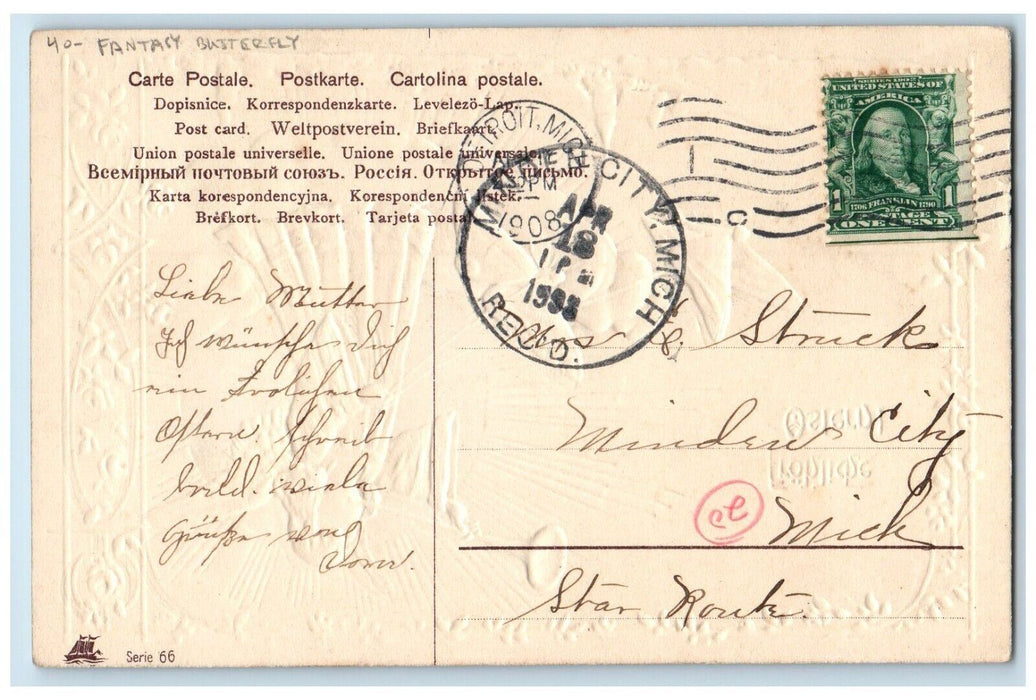 40- FANTASY BUTTERFLY
Carte Postale. Postkarte. Cartolina postale.
Dopisnice. Korrespondenzkarte. Levelező-Lap.
Post card. Weltpostverein. Briefkaart.
Union postale universelle. Unione postale universale.
Всемірный почтовый союзъ. Россія. Открытое письмо.
Karta korespondencyjna. Korespondenční lístek.
Brefkort. Brevkort. Tarjeta postal
DETROIT, MICH
PM
1908
MINDEN CITY, MICH
APR
18
1 P
REC'D.
SERIES 1902
UNITED STATES OF
AMERICA
1 1
1706 FRANKLIN 1790
POSTAGE
ONE CENT
Liebe Mutter
Ich wünsche Dich
ein Frolichen
Ostern. schreib
bald. viele
Grüße von
C Struck
Minden City
Mich
Star Route.
Fröhliche
Ostern
Serie 66